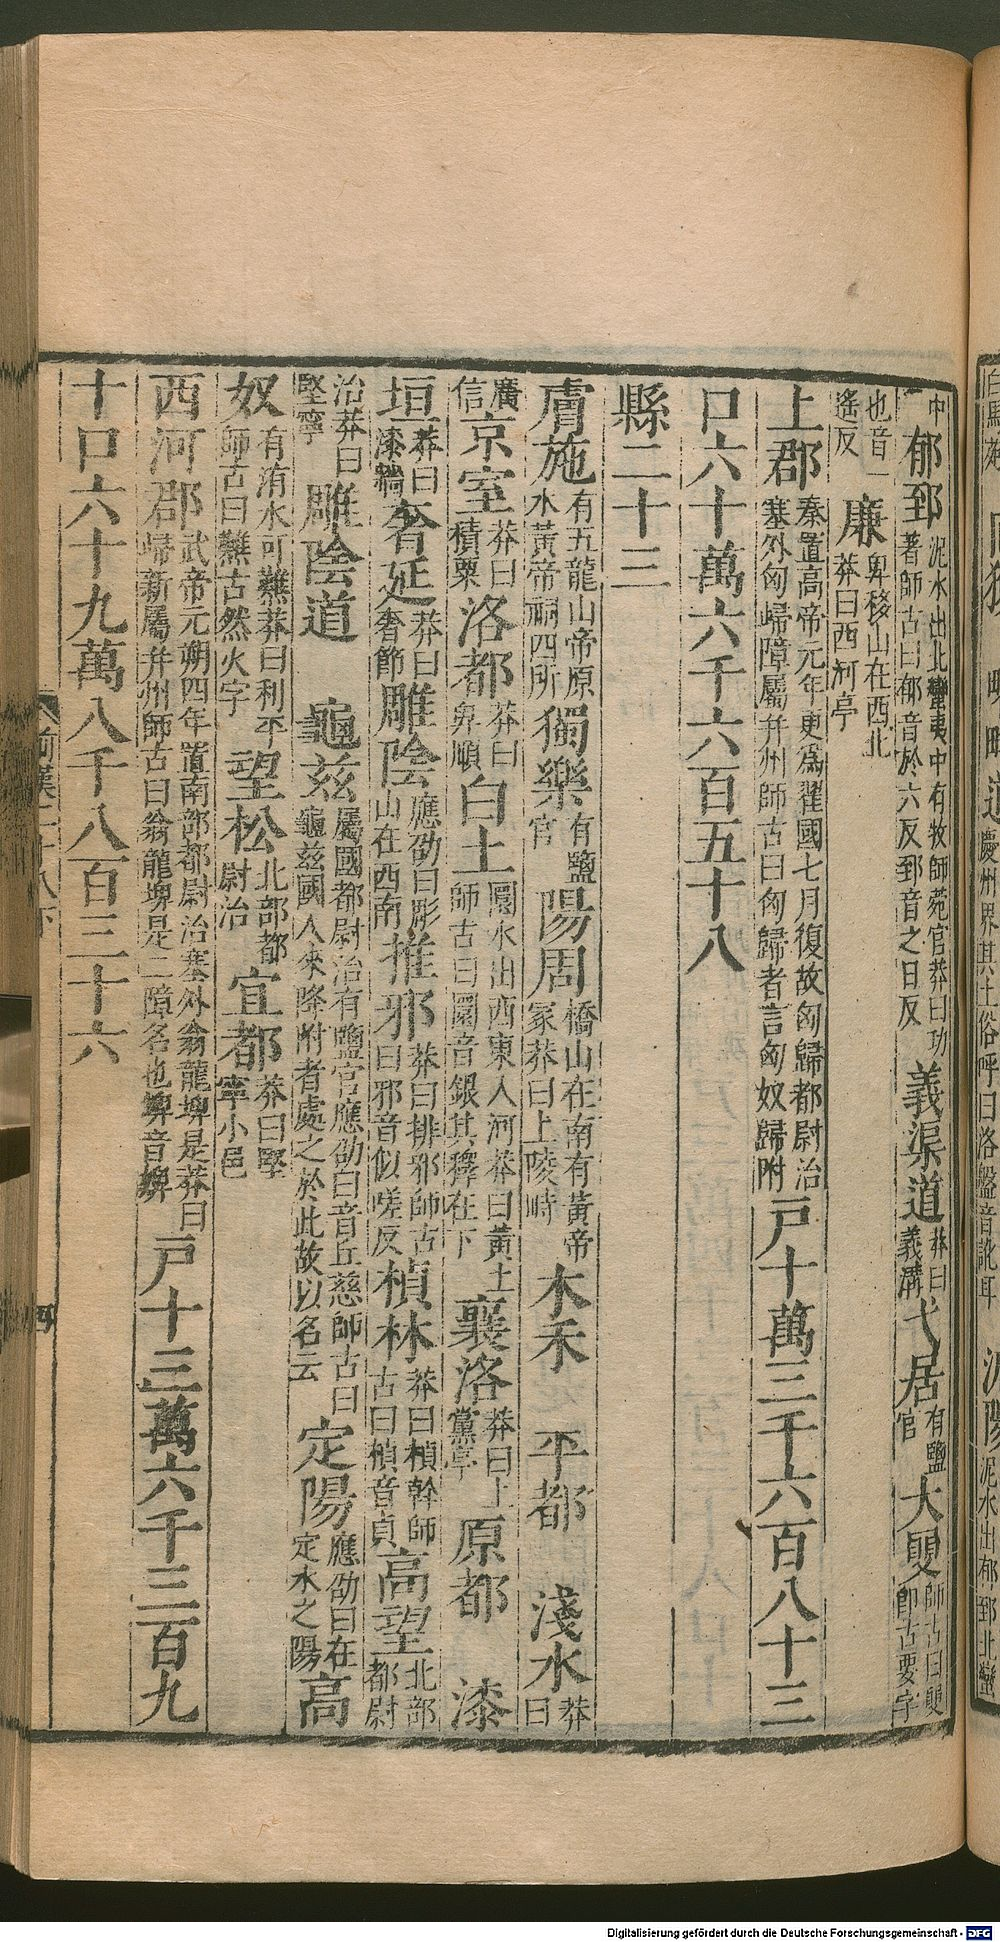 中郁郅泥水出北蠻夷中有牧師菀官莽曰功著師古曰郁音於六反郅音之日反義渠道莽曰義溝弋居有鹽官大𡪢師古曰𡪢即古要字
也音一遙反廉卑移山在西北莽曰西河亭
上郡秦置高帝元年更爲翟國七月復故匈歸都尉治塞外匈歸障屬并州師古曰匈歸者言匈奴歸附戶十萬三千六百八十三
口六十萬六千六百五十八
縣二十三
膚施有五龍山帝原水黃帝祠四所獨樂有鹽官陽周橋山在南有黃帝冢莽曰上陵畤木禾平都淺水莽曰
廣信京室莽曰積粟洛都莽曰卑順白土圜水出西東入河莽曰黃土師古曰圜音銀其釋在下襄洛莽曰上黨亭原都漆
垣莽曰漆牆奢延莽曰奢節雕陰應劭曰彫山在西南推邪莽曰排邪師古曰邪音似嗟反楨林莽曰楨幹師古曰楨音貞高望北部都尉
治莽曰堅寧雕陰道龜茲屬國都尉治有鹽官應劭曰音丘慈師古曰龜茲國人來降附者處之於此故以名云定陽應劭曰在定水之陽高
奴有洧水可㸐莽曰利平師古曰㸐古然火字望松北部都尉治宜都莽曰堅寧小邑
西河郡武帝元朔四年置南部都尉治塞外翁龍埤是莽曰歸新屬并州師古曰翁龍埤是二障名也埤音婢戶十三萬六千三百九
十口六十九萬八千八百三十六
前漢二十八下
四
慶州界其土俗呼曰洛盤音訛耳
泥陽泥水出郁郅北蠻
Digitalisierung gefördert durch die Deutsche Forschungsgemeinschaft - DFG